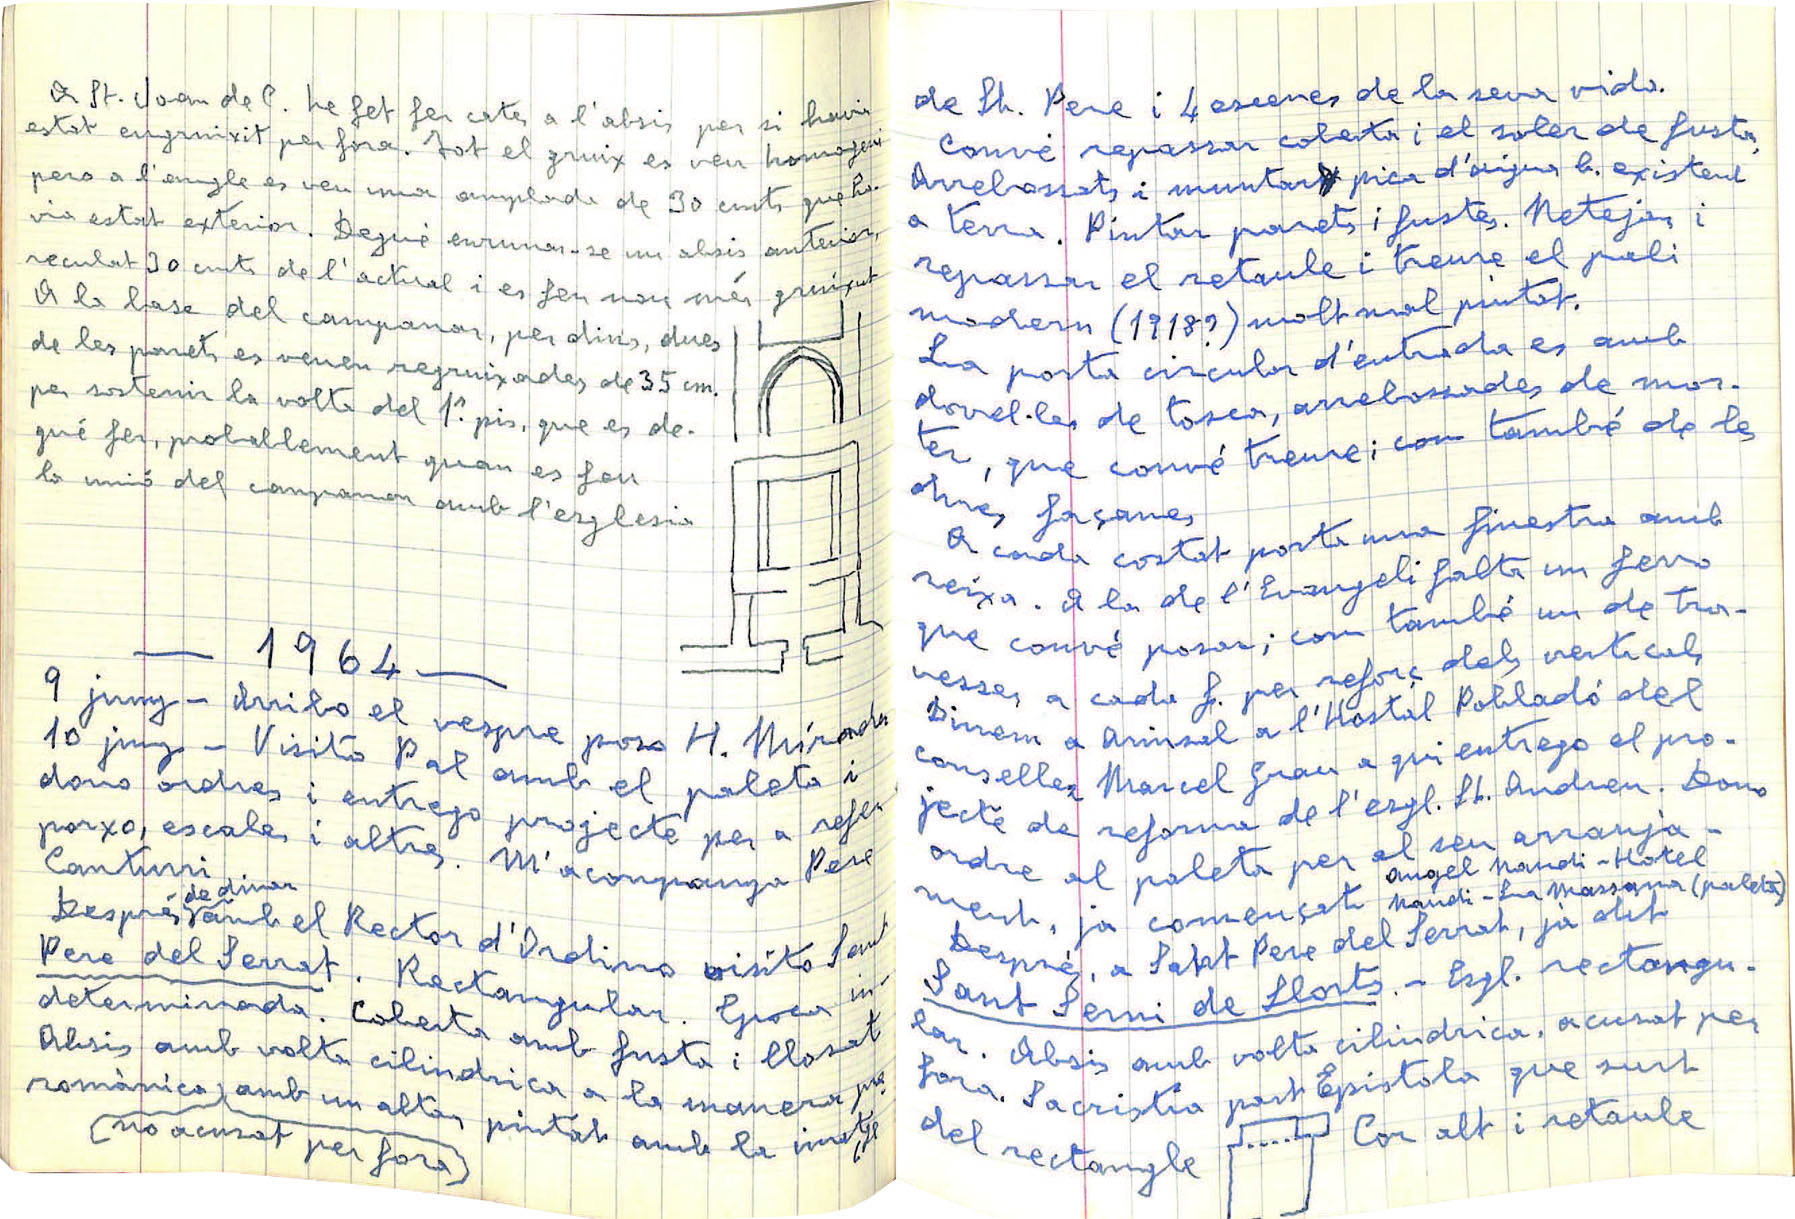 A St. Joan de C. he fet fer cates a l'absis per si havia
estat engruixit per fora. Tot el gruix es veu homogeni
pero a l'angle es veu una amplada de 30 cmts que ha-
via estat exterior. Degué enrunar-se un absis anterior,
reculat 30 cmts de l'actual i es feu nou més gruixut
A la base del campanar, per dins, dues
de les parets es veuen regruixades de 35 cm.
per sostenir la volta del 1er. pis, que es de-
gué fer, probablement quan es feu
la unió del campanar amb l'esglesia
— 1964 —
9 juny - Arribo el vespre poso H. Mirador
10 juny - Visito Pal amb el paleta i
dono ordres i entrego projecte per a refer
porxo, escales i altres. M'acompanya Pere
Canturri
de dinar
Després amb el Rector d'Ordino visito Sant
Pere del Serrat. Rectangular. Epoca in-
determinada. Coberta amb fusta i llosat
Absis amb volta cilindrica a la manera pre
romànica, amb un altar, pintat amb la imatge
(no acusat per fora)
de St. Pere i 4 escenes de la seva vida.
Convé repassar coberta i el soler de fusta,
Arrebossats i muntar pica d'aigua b. existent
a terra. Pintar parets i fustes. Netejar i
repassar el retaule i treure el pali
modern (1918?) molt mal pintat.
La porta circular d'entrada es amb
dovel·les de tosca, arrebossades de mor-
ter, que convé treure; com també de les
dues façanes
A cada costat porta una finestra amb
reixa. A la de l'Evangeli falta un ferro
que convé posar; com també un de tra-
vesser a cada f. per reforç dels verticals
Dinem a Arinsal a l'Hostal Pobladó del
conseller Marcel Grau a qui entrego el pro-
jecte de reforma de l'esgl. St. Andreu. Dono
ordre al paleta per al seu arranja-
ment, ja començat Angel Naudi - Hotel
Naudi - La Massana (paleta)
Després, a Sant Pere del Serrat, ja dit
Sant Serni de Llorts. - Esgl. rectangu-
lar. Absis amb volta cilindrica, acusat per
fora. Sacristia part Epistola que surt
del rectangle Cor alt i retaule